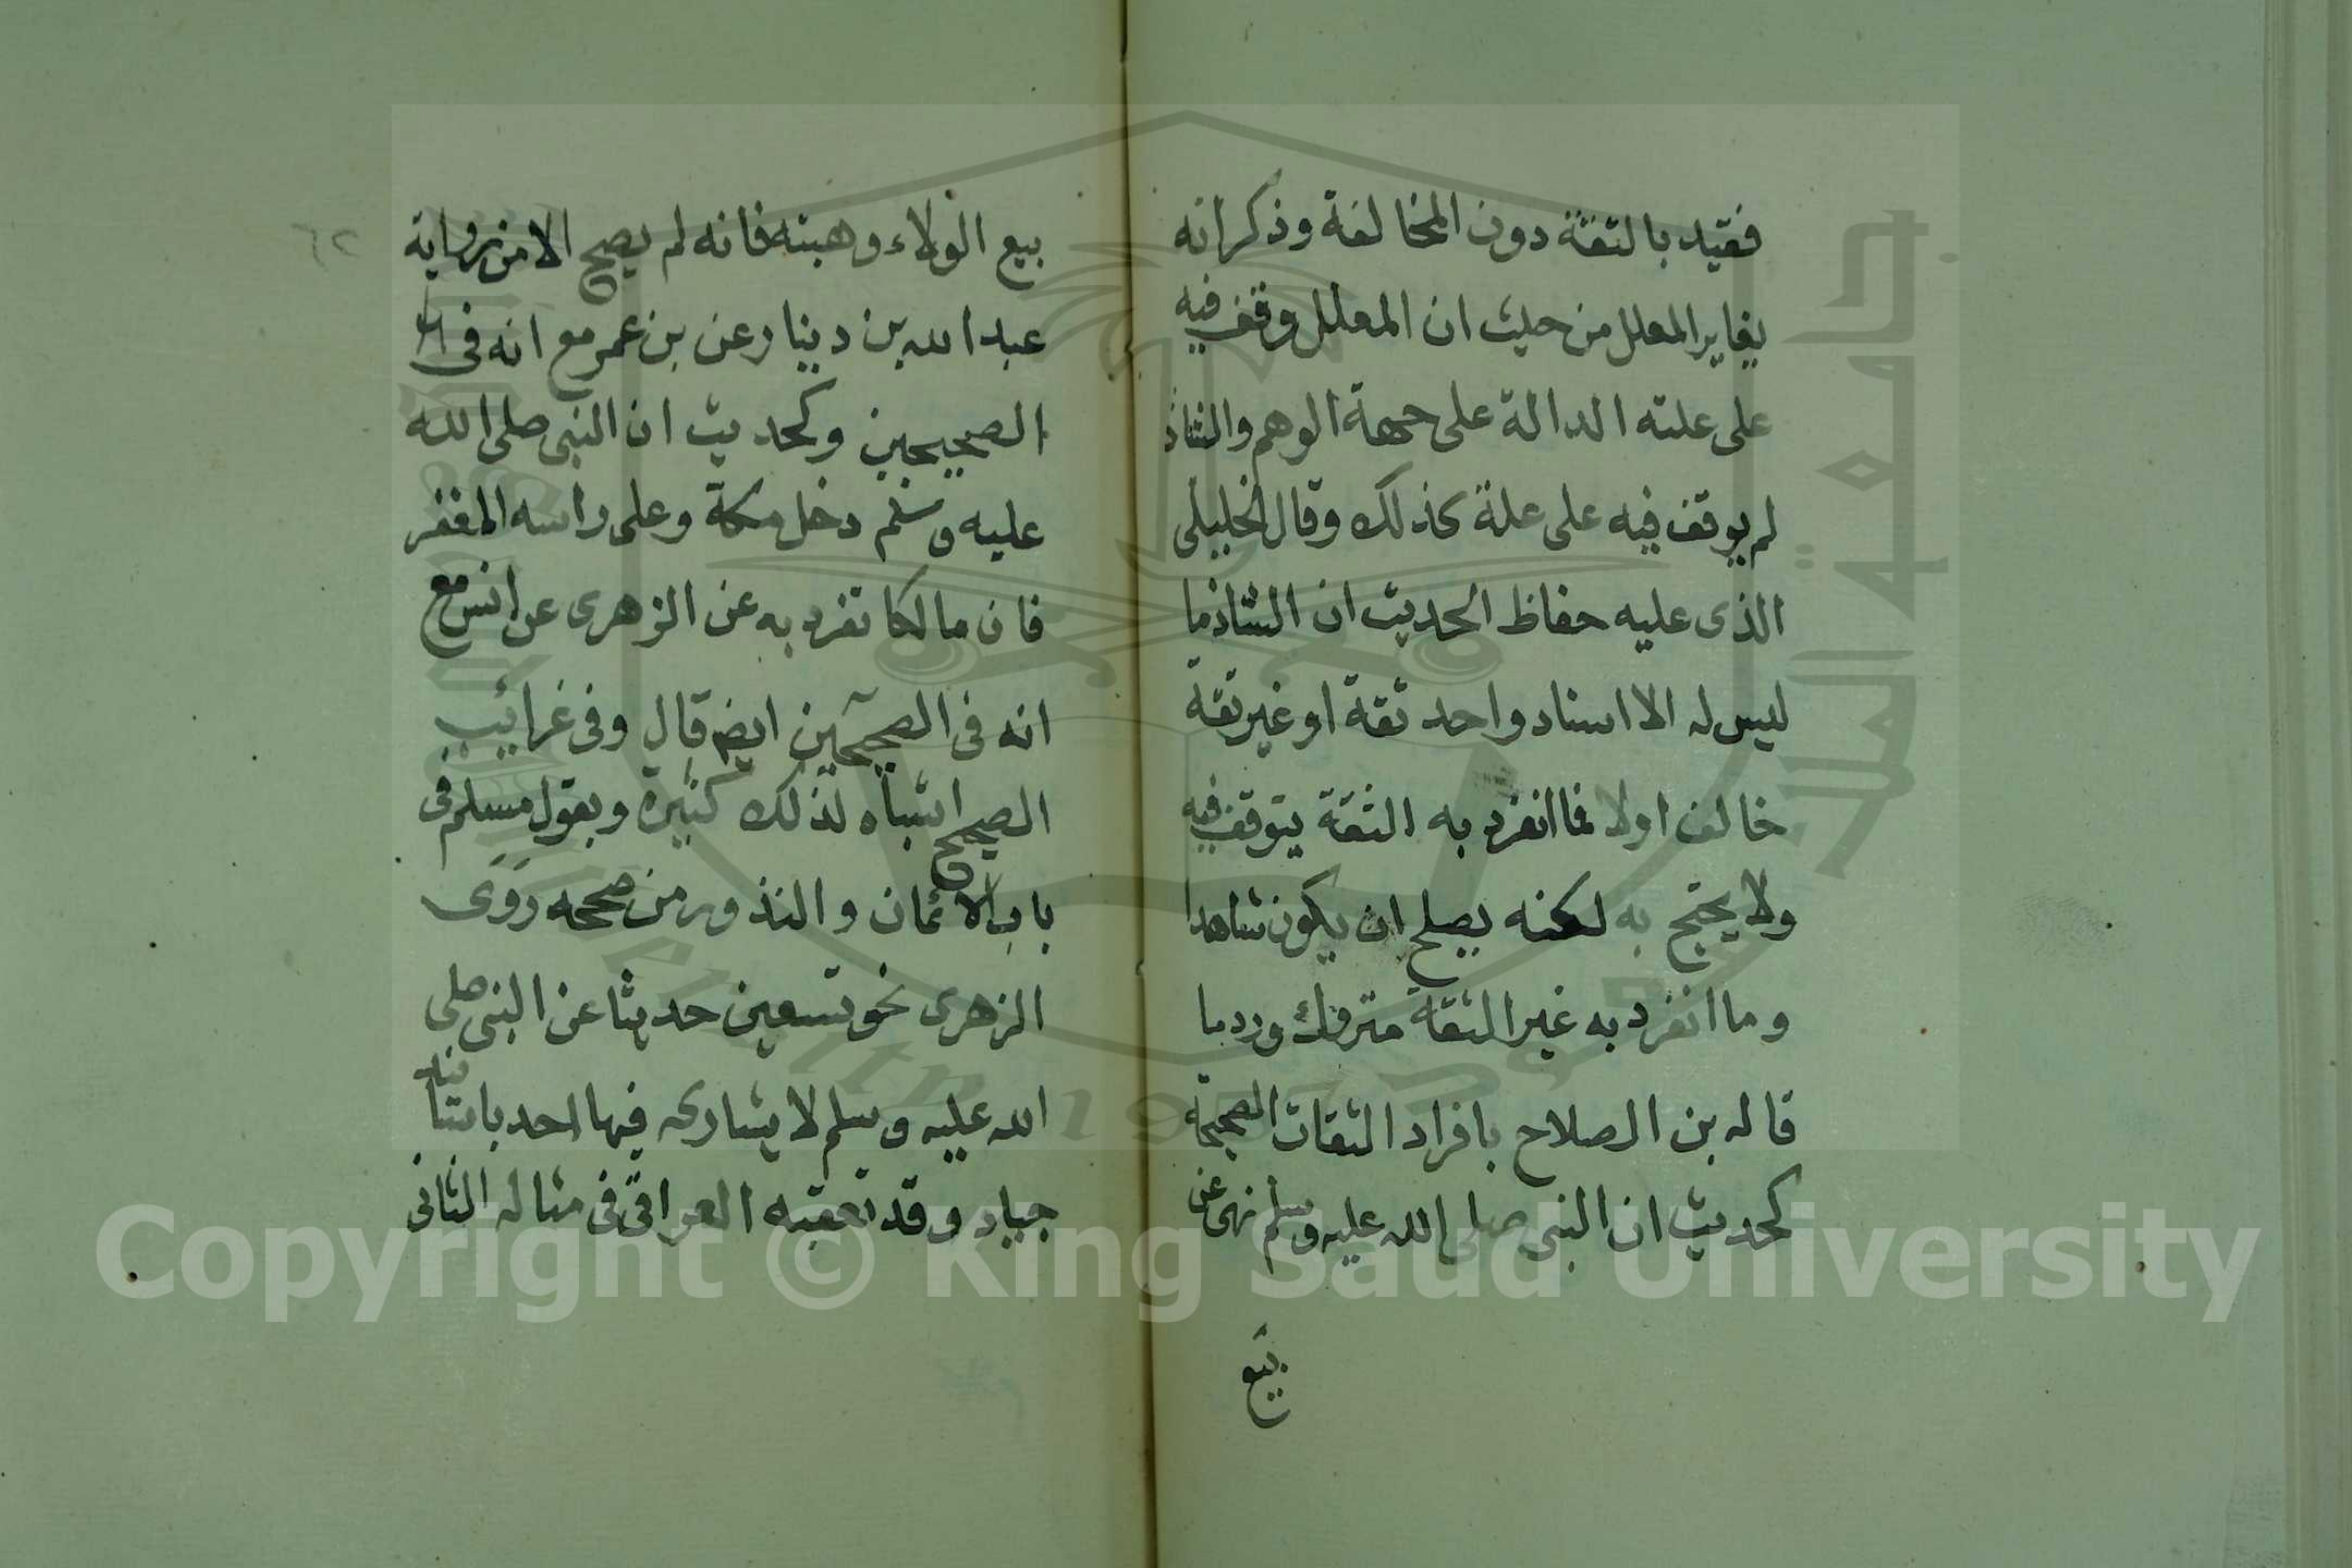 فقيد بالثقة دون المخالفة وذكر انه
يغاير المعلل من حيث ان المعلل وقف فيه
على علته الدالة على جهة الوهم والشاذ
لم يوقف فيه على علة كذلك وقال الخليلى
الذى عليه حفاظ الحديث ان الشاذ ما
ليس له الا اسناد واحد ثقة او غير ثقة
خالف اولا فما انفرد به الثقة يتوقف فيه
ولا يحتج به لكنه يصلح ان يكون شاهدا
وما انفرد به غير الثقة متروك ورد ما
قاله بن الصلاح بافراد الثقات الصحيحة
كحديث ان النبى صلى الله عليه وسلم نهى عن
بيع
بيع الولاء وهبته فانه لم يصح الا من رواية
عبد الله بن دينار عن بن عمر مع انه فى
الصحيحين وكحديث ان النبى صلى الله
عليه وسلم دخل مكة وعلى راسه المغفر
فان مالكا تفرد به عن الزهرى عن انس مع
انه فى الصحيحين ايضا قال وفى غرائب
الصحيح اشباه لذلك كثيرة وبقول مسلم فى
باب الائمان والنذور من صحيحه روى
الزهرى نحو تسعين حديثا عن النبى صلى
الله عليه وسلم لا يشاركه فيها احد باسناد
جياد وقد تعقبه العراقى فى مثاله الثانى
٦٢
Copyright © King Saud University